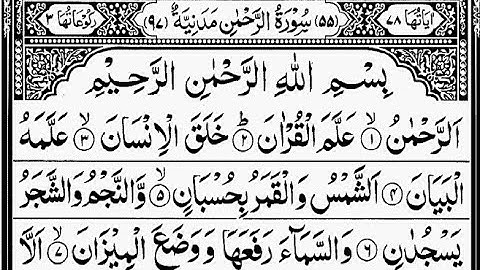 اٰیَاتُهَا ٧٨ (٥٥) سُوْرَةُ الرَّحْمٰنِ مَدَنِیَّةٌ (٩٧) رُكُوْعَاتُهَا ٣
بِسْمِ اللهِ الرَّحْمٰنِ الرَّحِیْمِ
اَلرَّحْمٰنُ ۙ﴿١﴾ عَلَّمَ الْقُرْاٰنَ ؕ﴿٢﴾ خَلَقَ الْاِنْسَانَ ۙ﴿٣﴾ عَلَّمَهُ
الْبَیَانَ ﴿٤﴾ اَلشَّمْسُ وَالْقَمَرُ بِحُسْبَانٍ ۙ﴿٥﴾ وَّالنَّجْمُ وَالشَّجَرُ
یَسْجُدٰنِ ﴿٦﴾ وَالسَّمَآءَ رَفَعَهَا وَوَضَعَ الْمِیْزَانَ ۙ﴿٧﴾ اَلَّا